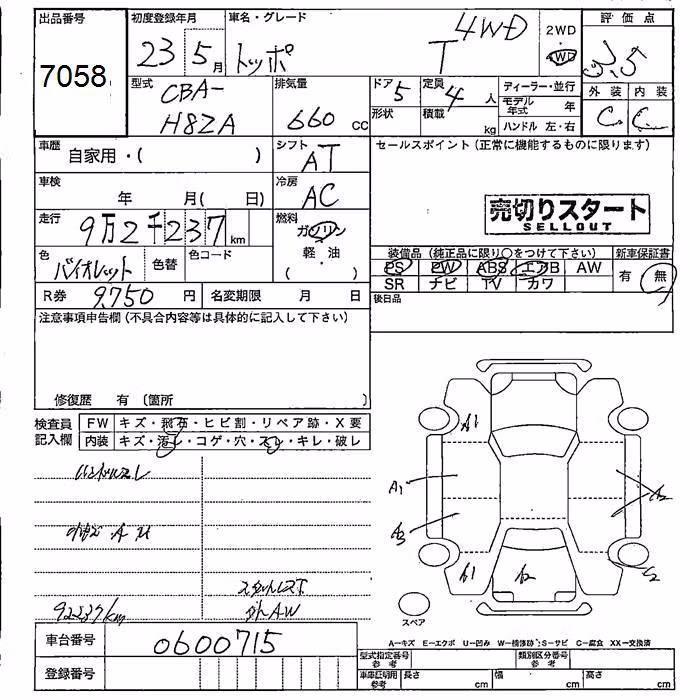 出品番号
7058
初度登録年月
23 5月
車名・グレード
トッポ T 4WD
2WD
4WD
評価点
3.5
型式
CBA-
H82A
排気量
660 cc
ドア 5
形状
定員 4 人
積載 kg
ディーラー・並行
モデル年式 年
ハンドル 左・右
外装 内装
C C
車歴
自家用・( )
シフト
AT
セールスポイント(正常に機能するものに限ります)
車検
年 月( 日)
冷房
AC
売切りスタート
SELLOUT
走行
9万2千237km
燃料
ガソリン
軽・油
( )
色
バイオレット
色替
色コード
装備品(純正品に限り○をつけて下さい)
新車保証書
PS PW ABS エアB AW
SR ナビ TV カワ
有 無
R券 9,750 円
名変期限 月 日
後日品
注意事項申告欄(不具合内容等は具体的に記入して下さい)
修復歴 有(箇所 )
検査員
記入欄
FW キズ・飛石・ヒビ割・リペア跡・X要
内装 キズ・汚レ・コゲ・穴・スレ・キレ・破レ
ハンドルスレ
スタットレスT
外AW
92237km
A1
A1
A2
A3
A1
A2
C2
スペア
A−キズ E−エクボ U−凹み W−補修跡 S−サビ C−腐食 XX−交換済
車台番号
0600715
登録番号
型式指定番号
参考
類別区分番号
参考
車庫証明用
参考
長さ cm
幅 cm
高さ cm